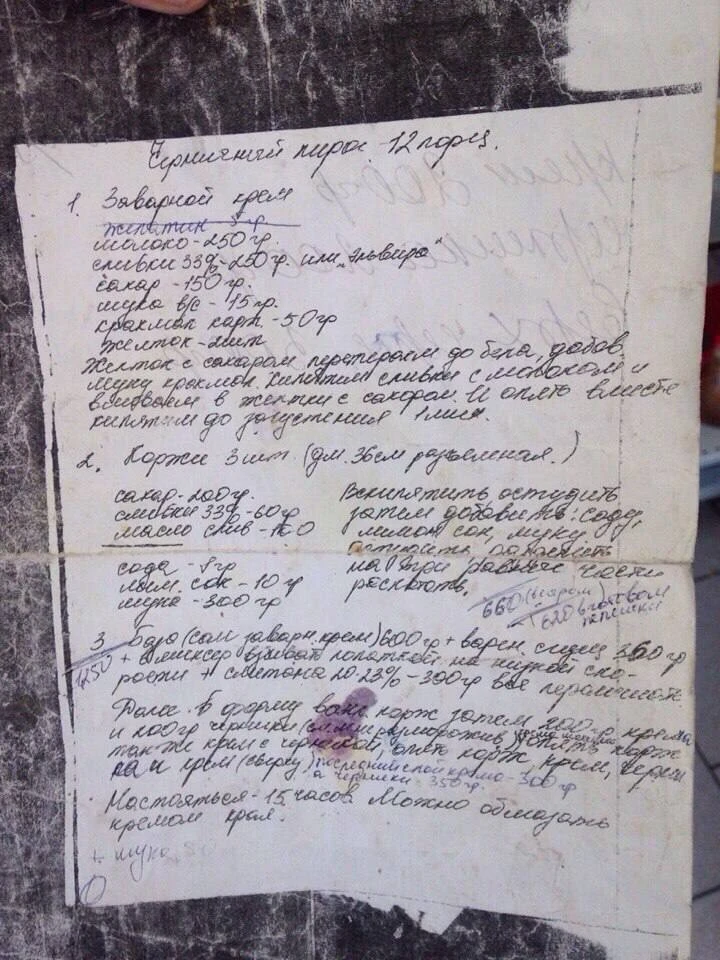 Черничный пирог 12 порц.
1. Заварной крем
желатин 5 гр.
молоко - 250 гр.
сливки 33% - 250 гр. или "Эльвира"
сахар - 150 гр.
мука в/с - 15 гр.
крахмал карт. - 50 гр
желток - 2 шт
Желток с сахаром перетираем до бела, добав.
муку крахмал. Кипятим сливки с молоком и
вливаем в желтки с сахаром. И опять вместе
кипятим до загустения 1 мин.
2. Коржи 3 шт. (дм. 36 см разъемная.)
сахар - 200 гр. Вскипятить остудить
сливки 33% - 60 гр затем добавить: соду,
масло слив - 100 лимон сок, муку.
сода - 8 гр на три равные части
лим. сок - 10 гр раскатать.
мука - 300 гр
660 (сыром)
620 в готовом
3. База (сам заварн. крем) 600 гр + варен. сгущ 360 гр
1250
+ в миксер взбивать лопаткой на низкой ско-
рости + сметана 20-23% - 300 гр все перемешать.
Далее. В форму ванк. корж затем 200 гр. крема
и 100 гр черники
так же крем с черникой, опять корж, крем, черни
ка и крем (сверху) последний слой крема - 300 гр
а черники - 350 гр.
Настояться - 15 часов Можно обмазать
кремом края.
+ мука